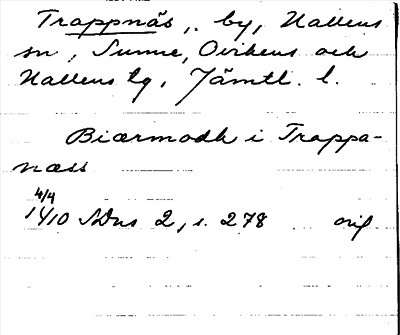 Trappnäs, by, Hallens
sn, Sunne, Ovikens och
Hallens tg, Jämtl. l.
Biærmodh i Trappa-
næss
4/4
1410 SDns 2, s. 278 orig